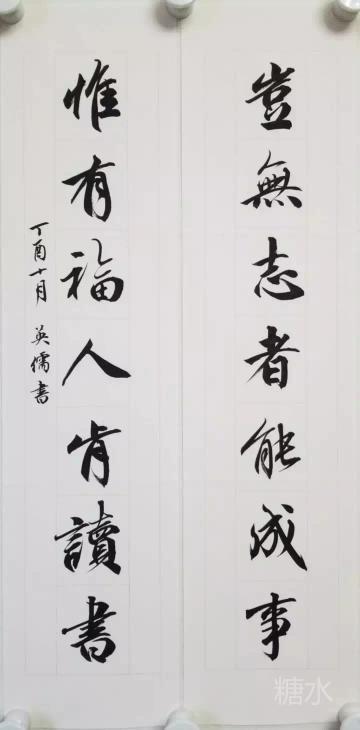 豈無志者能成事
惟有福人肯讀書
丁酉十月 英儒書
糖水